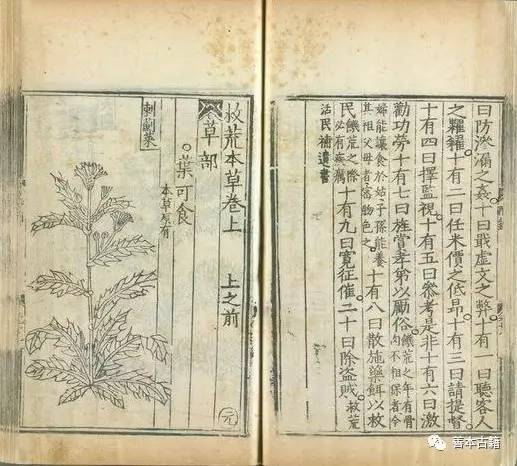 曰防淤漏之姦十曰戢虛文之弊十有一曰聽客人
之糶糴十有二曰任米價之低昻十有三曰請提督
十有四曰擇監視十有五曰參考是非十有六曰激
勸功勞十有七曰旌賞孝弟以勵俗饑荒之年有骨肉不相保者令
婦能讓食於姑子孫能養其祖父母者當物色之十有八曰散施藥餌以救
民饑荒之際必有疾癘十有九曰寬征催二十曰除盜賊救荒
活民補遺書
救荒本草卷上 上之前
草部
葉可食
本草原有
刺薊菜
元
善本古籍